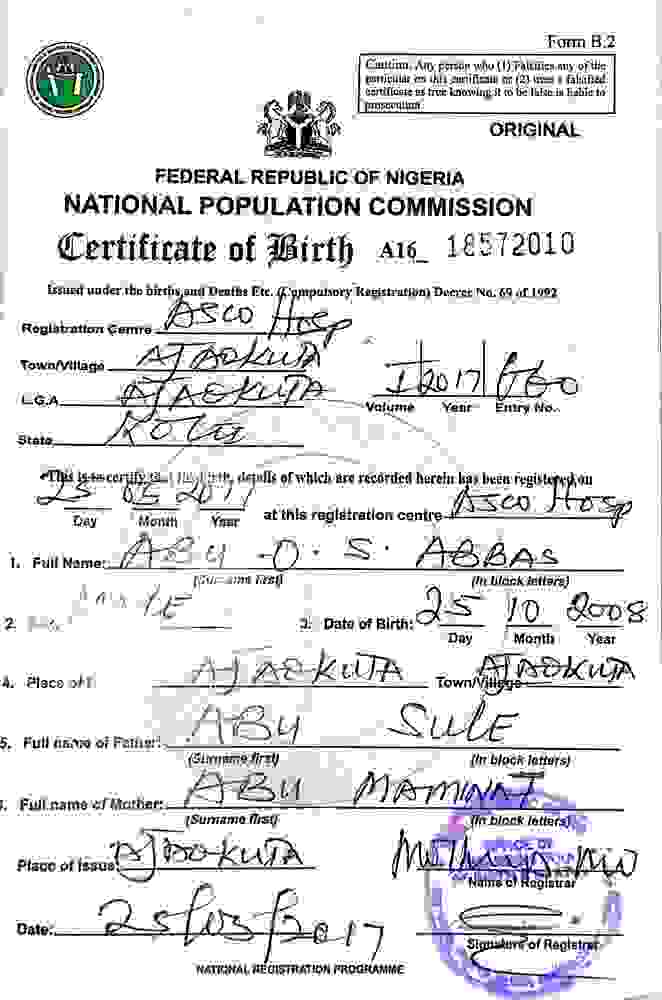 Form B.2
Caution. Any person who (1) Falsifies any of the
particular on this certificate or (2) uses a falsified
certificate as true knowing it to be false is liable to
prosecution
ORIGINAL
FEDERAL REPUBLIC OF NIGERIA
NATIONAL POPULATION COMMISSION
Certificate of Birth A16_ 18572010
Issued under the births and Deaths Etc. (Compulsory Registration) Decree No. 69 of 1992
Registration Centre ASCO Hosp
Town/Village AJAOKUTA
L.G.A. AJAOKUTA
I 2017
Volume Year Entry No.
State KOGI
This is to certify that the birth, details of which are recorded herein has been registered on
25 05 2017
Day Month Year at this registration centre ASCO Hosp
1. Full Name: ABU - O. S. ABBAS
(Surname first) (In block letters)
2. MALE 3. Date of Birth: 25 10 2008
Day Month Year
4. Place of AJAOKUTA Town/Village AJAOKUTA
5. Full name of Father: ABU SULE
(Surname first) (In block letters)
Full name of Mother: ABU
(Surname first) (In block letters)
Place of Issue AJAOKUTA
Name of Registrar
Date: 2017
Signature of Registrar
NATIONAL REGISTRATION PROGRAMME